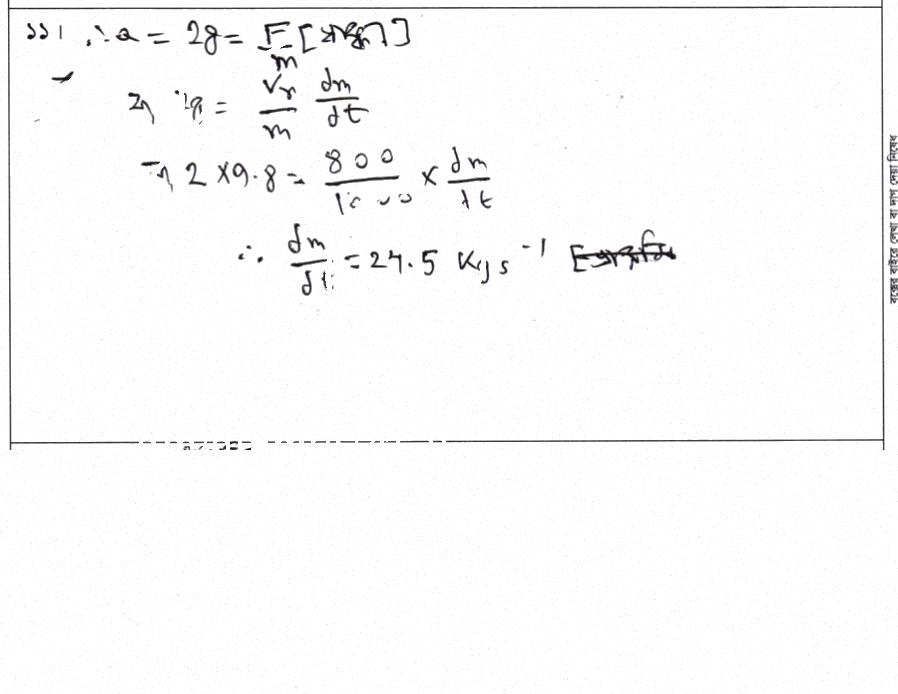 ১১। ∴ a = 2g = F/m
বা, 2g = v_r/m dm/dt
বা, 2 × 9.8 = 800/1000 × dm/dt
∴ dm/dt = 24.5 kg s⁻¹
বক্সের বাইরে লেখা বা দাগ দেয়া নিষেধ